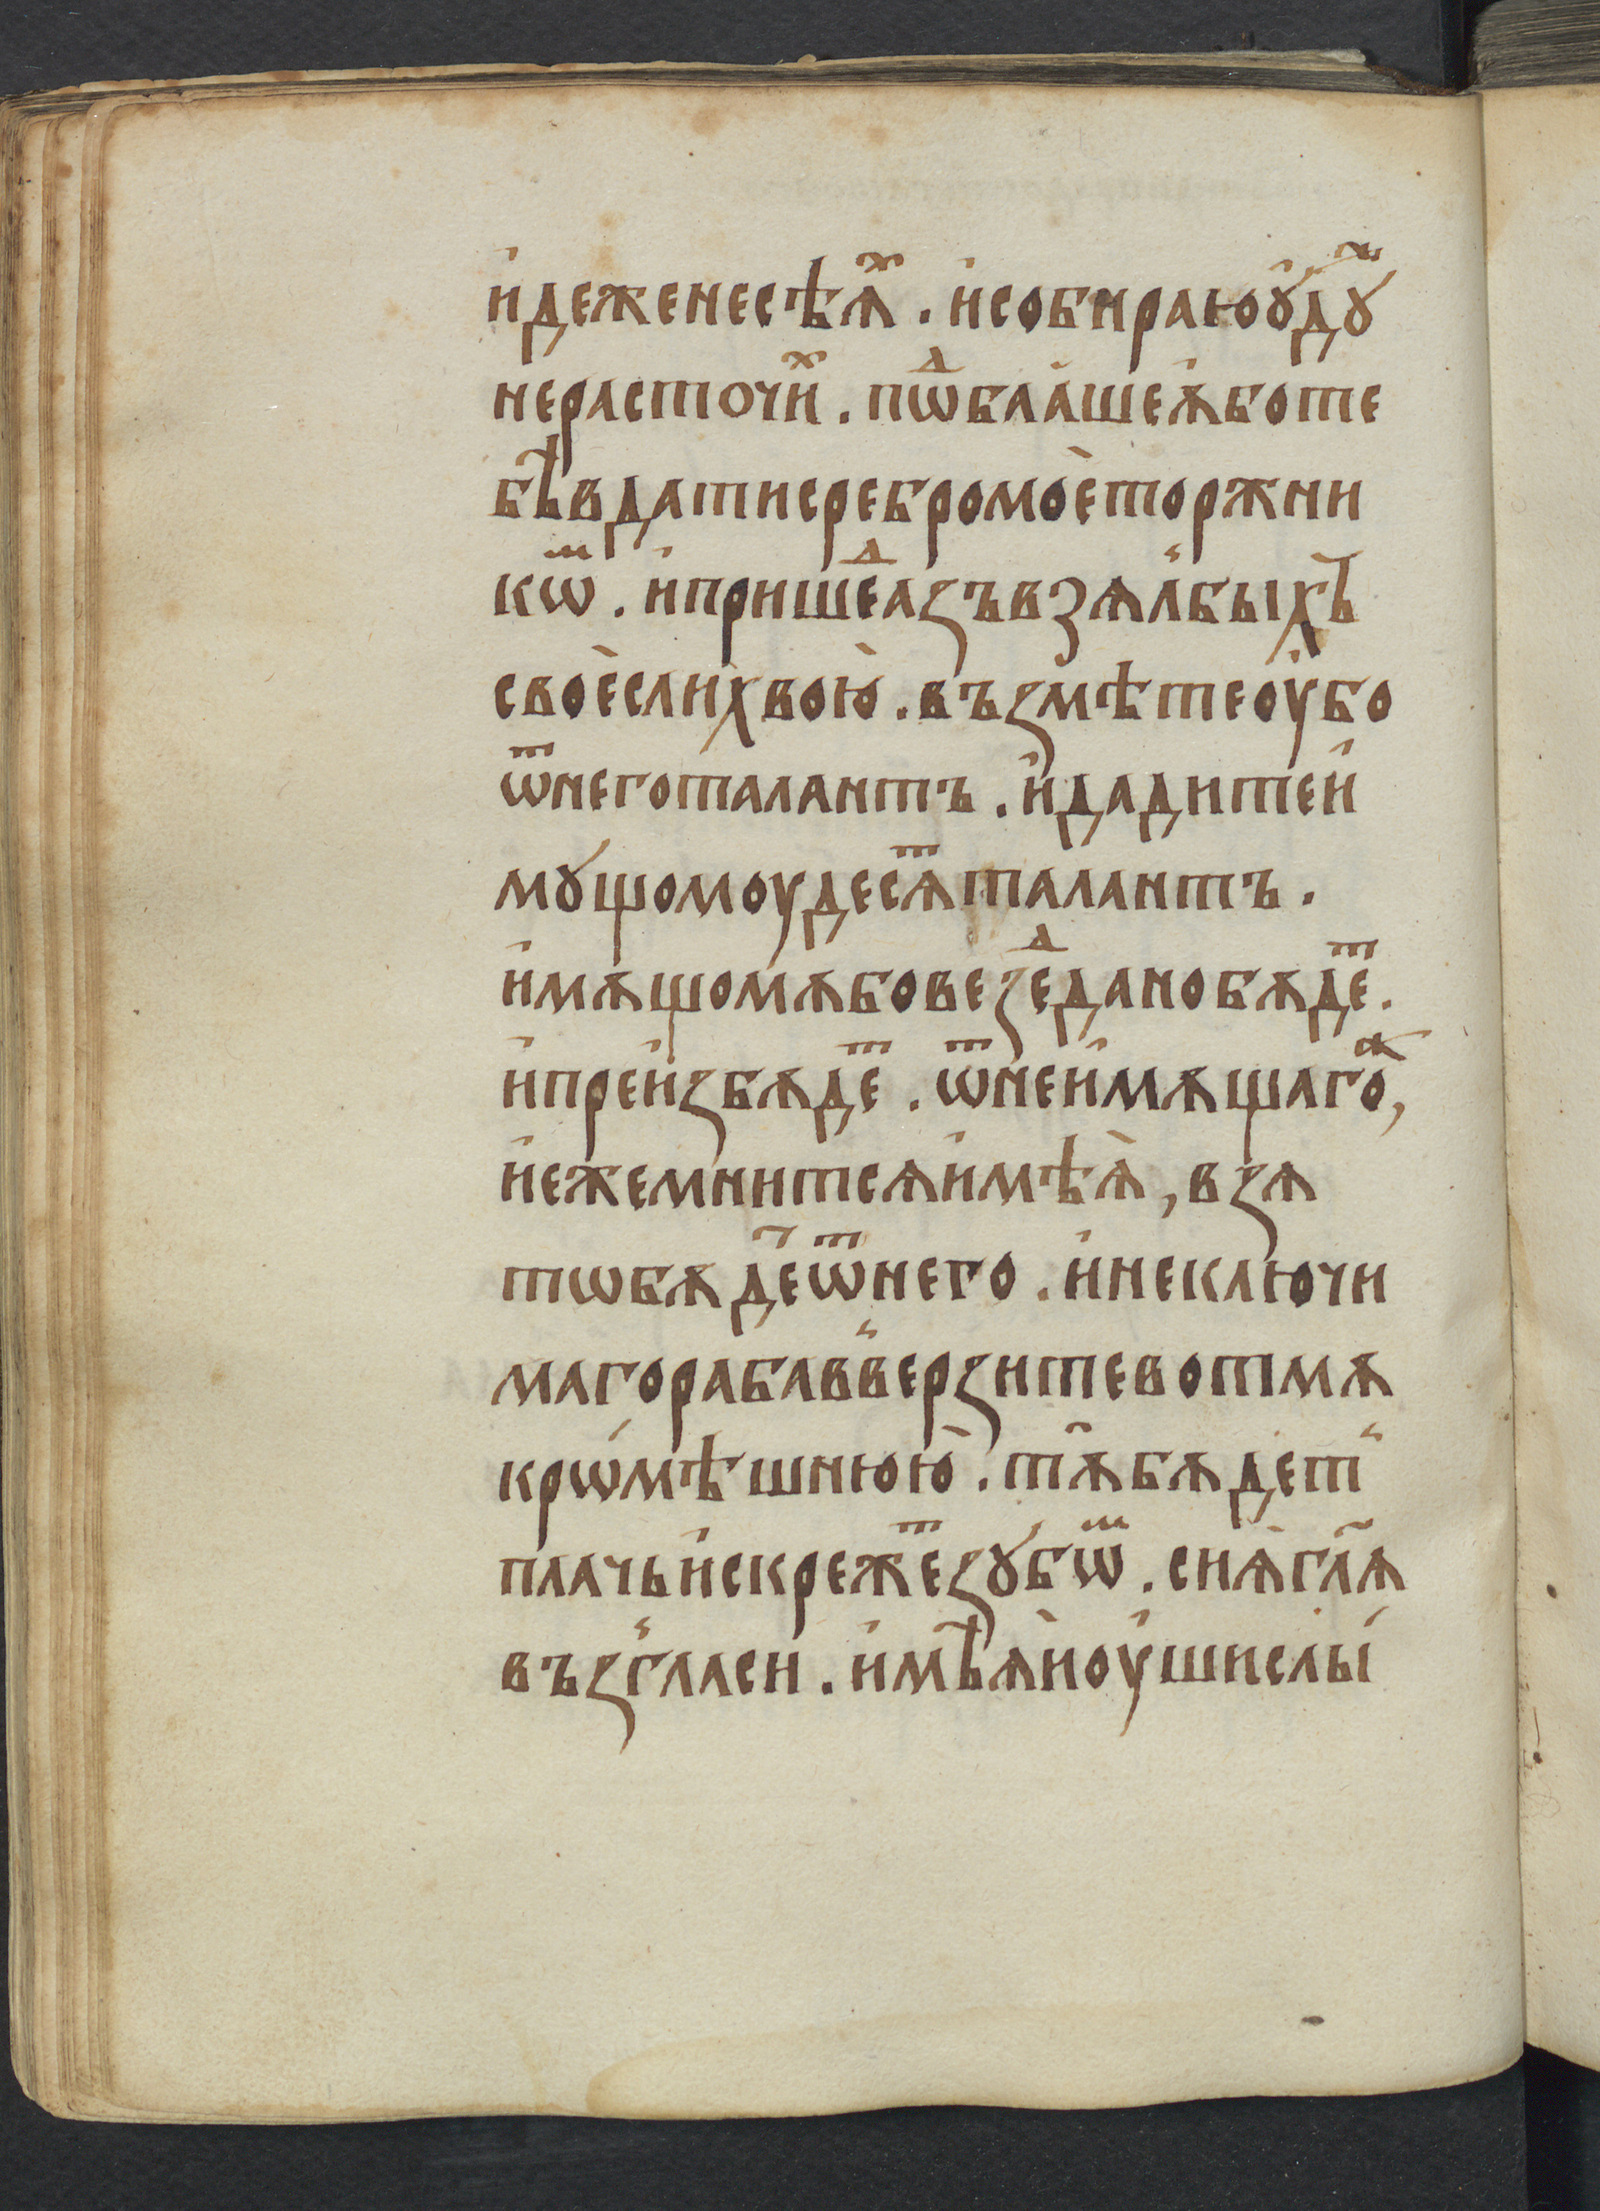 и҆деженесѣѧⷯ҇ . и҆собираюꙋ҆дꙋⷤ
нерасточиⷯ҇ . пѡⷣбаа́шеѧ҆боте
бѣвдатисребромоѐторжни
кѡⷨ . и҆пришеⷣа́ꙁъвзѧл҆быхъ
своѐслихвою̀ . въꙁмѣтеоу҆бо
ѿнеготалантъ . и҆дадитеи҆
мꙋ́щомоудесѧⷮталантъ .
и҆мѫщомѫбовеꙁеⷣданобѫдеⷮ .
и҆преи҆ꙁбѫдеⷮ . ѿнеи҆мѫщагоⷤ ,
и҆ежемнитсѧи҆мѣѧ̀ , вꙁѧ
тѡбѫдеⷮѿнего . и҆неключи
магорабавⸯверꙁитевотмѫ
крѡ́мѣшнюю̀ . тꙋ҆бѫдетⸯ
плачьи҆скрежеⷮꙁꙋбѡⷨ . сиѧ̀гл҃ѧ
въꙁⸯгласи . и҆мѣѧ̀и҆оу҆шислы́